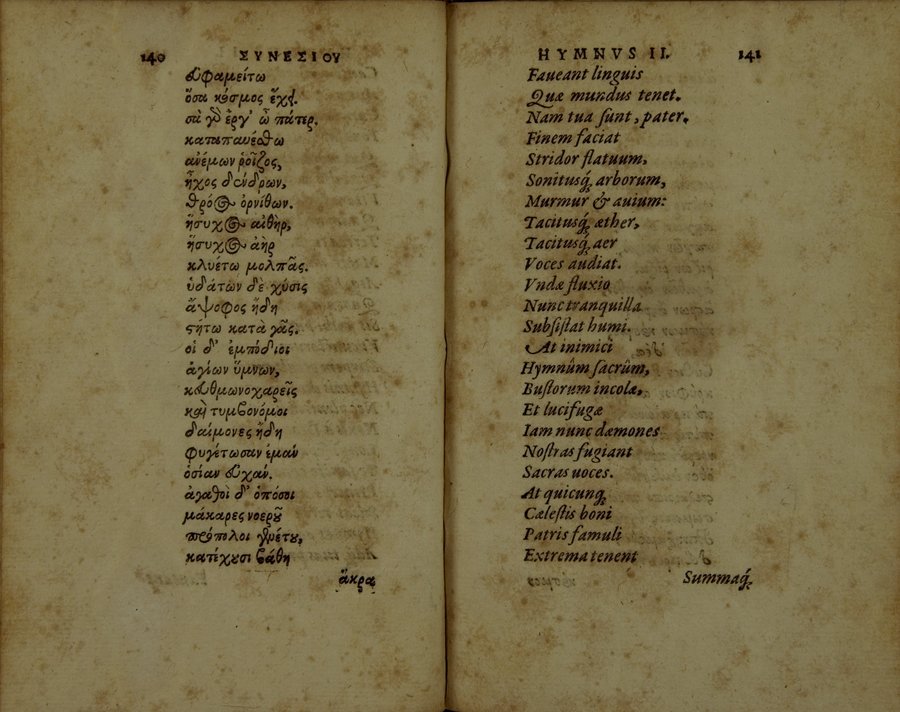 140 ΣΥΝΕΣΙΟΥ
εὐφαμείτω
ὅσα κόσμος ἔχει.
σὰ γὸ ἔργ' ὦ πάτερ.
καταπαυέσθω
ἀνέμων ῥοῖζος,
ἦχος δένδρων,
θρόος ὀρνίθων.
ἥσυχος αἰθὴρ,
ἥσυχος ἀὴρ
κλυέτω μολπᾶς.
ὑδάτων δὲ χύσις
ἄψοφος ἤδη
στήτω κατὰ γᾶς.
οἱ δ' ἐμπόδιοι
ἁγίων ὕμνων,
κευθμωνοχαρεῖς
καὶ τυμβονόμοι
δαίμονες ἤδη
φυγέτωσαν ἐμὰν
ὁσίαν εὐχάν.
ἀγαθοὶ δ' ὁπόσοι
μάκαρες νοεροῦ
πρόπολοι γενέτου,
κατέχουσι βάθη
ἄκρα
HYMNVS II. 141
Faueant linguis
Quæ mundus tenet.
Nam tua sunt, pater.
Finem faciat
Stridor flatuum,
Sonitusq́; arborum,
Murmur & auium:
Tacitusq́; æther,
Tacitusq́; aer
Voces audiat.
Vndæ fluxio
Nunc tranquilla
Subsistat humi.
At inimici
Hymnûm sacrûm,
Bustorum incolæ,
Et lucifugæ
Iam nunc dæmones
Nostras fugiant
Sacras uoces.
At quicunq;
Cælestis boni
Patris famuli
Extrema tenent
Summaq́;